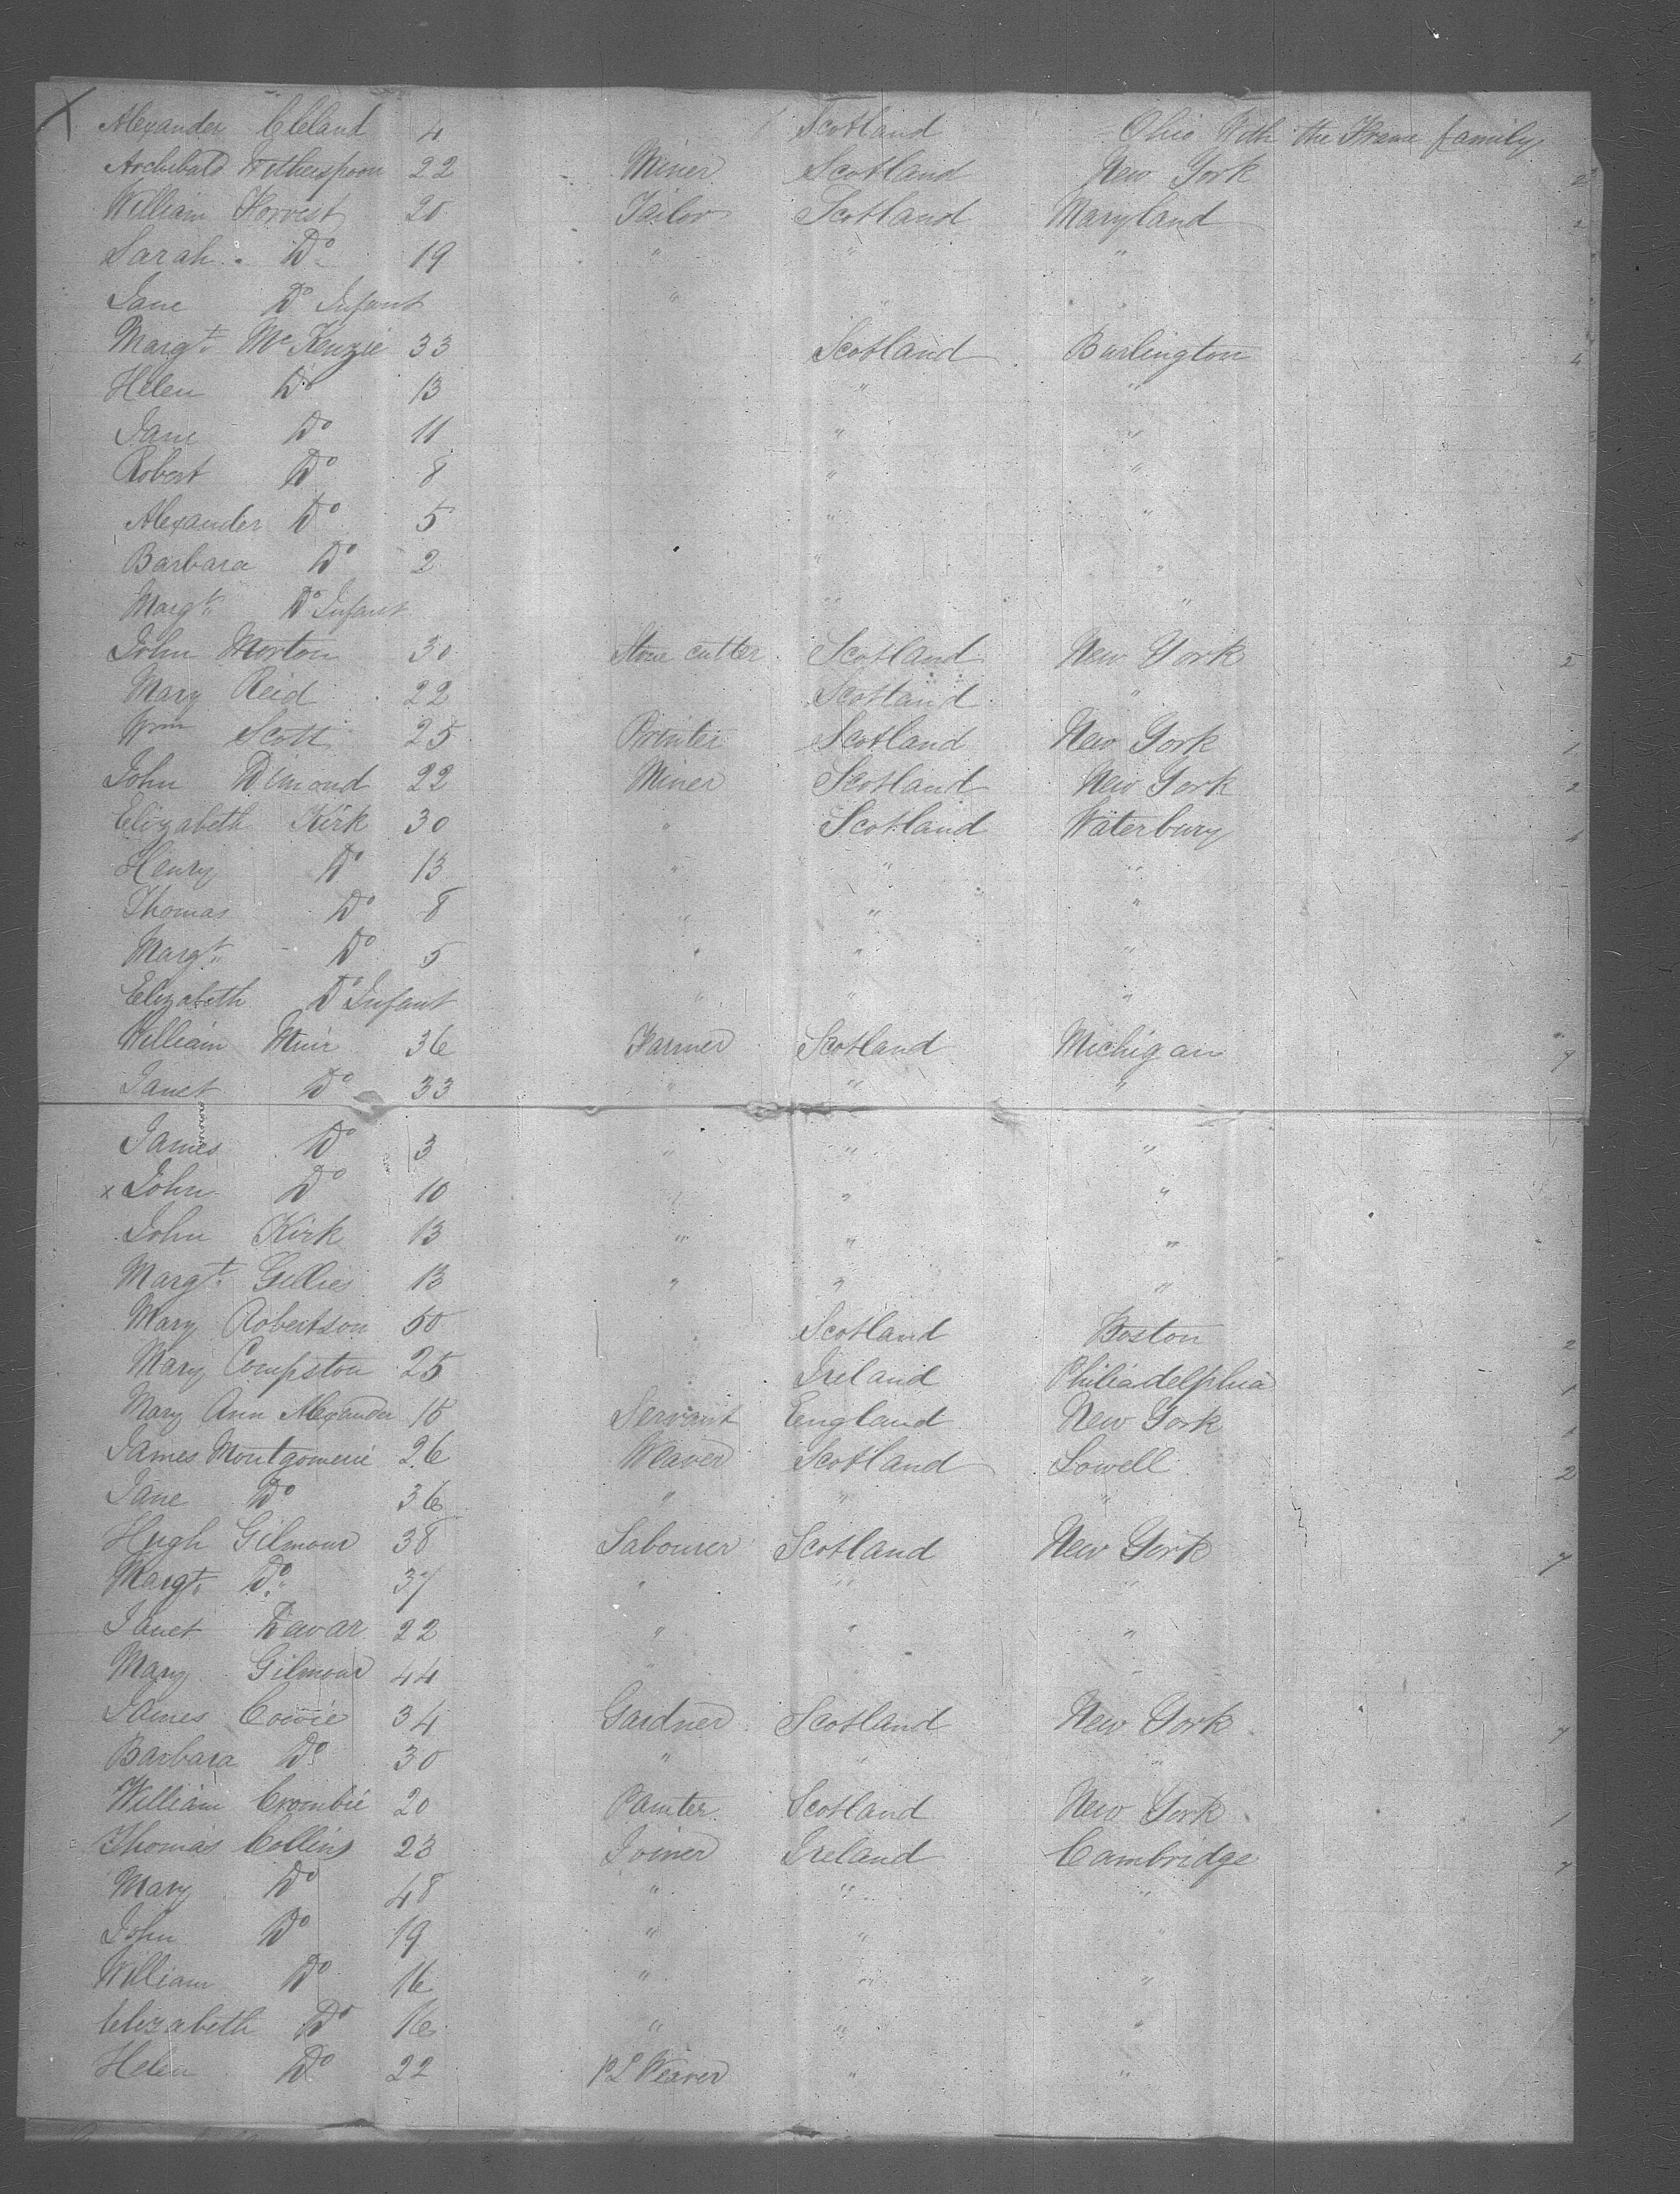 X Alexander Cleland 4 Scotland Ohio With the Frame family
Archibald Witherspoon 22 Miner Scotland New York 2
William Forrest 20 Tailor Scotland Maryland 2
Sarah Do 19 " " "
Jane Do Infant " " "
Margt. McKenzie 33 Scotland Burlington 4
Helen Do 13 " "
Jane Do 11 " "
Robert Do 8 " "
Alexander Do 5 " "
Barbara Do 2 " "
Margt. Do Infant " "
John Morton 30 Stone cutter Scotland New York 2
Mary Reid 22 Scotland "
Wm Scott 25 Printer Scotland New York 1
John Dimond 22 Miner Scotland New York 2
Elizabeth Kirk 30 " Scotland Waterbury
Henry Do 13 " " "
Thomas Do 8 " " "
Margt. Do 5 " " "
Elizabeth Do Infant " " "
William Muir 36 Farmer Scotland Michigan 9
Janet Do 33 " " "
James Do 3 " " "
x John Do 10 " " "
John Kirk 13 " " "
Margt. Gillies 13 " " "
Mary Robertson 50 Scotland Boston 2
Mary Compston 25 Ireland Philiadelphia 1
Mary Ann Alexander 18 Servant England New York 1
James Montgomerie 26 Weaver Scotland Lowell 2
Jane Do 36 " " "
Hugh Gilmour 38 Labourer Scotland New York 7
Margt. Do 37 " " "
Janet Dawar 22 " " "
Mary Gilmour 44 " " "
James Cowie 34 Gardner Scotland New York 7
Barbara Do 30 " " "
William Crombie 20 Painter Scotland New York 1
Thomas Collins 23 Joiner Ireland Cambridge 7
Mary Do 48 " " "
John Do 19 " " "
William Do 16 " " "
Elizabeth Do 16 " " "
Helen Do 22 P L Weaver " "